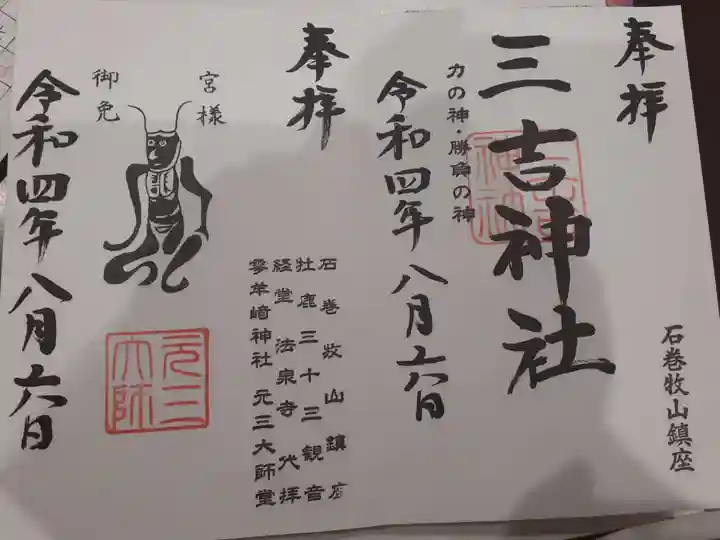 奉拝
三吉神社
三吉
神社
力の神・勝負の神
令和四年八月六日
石巻牧山鎮座
奉拝
宮様
御免
石巻牧山鎮座
牡鹿三十三観音
経堂 法泉寺代拝
零羊﨑神社 元三大師堂
元三
大師
令和四年八月六日